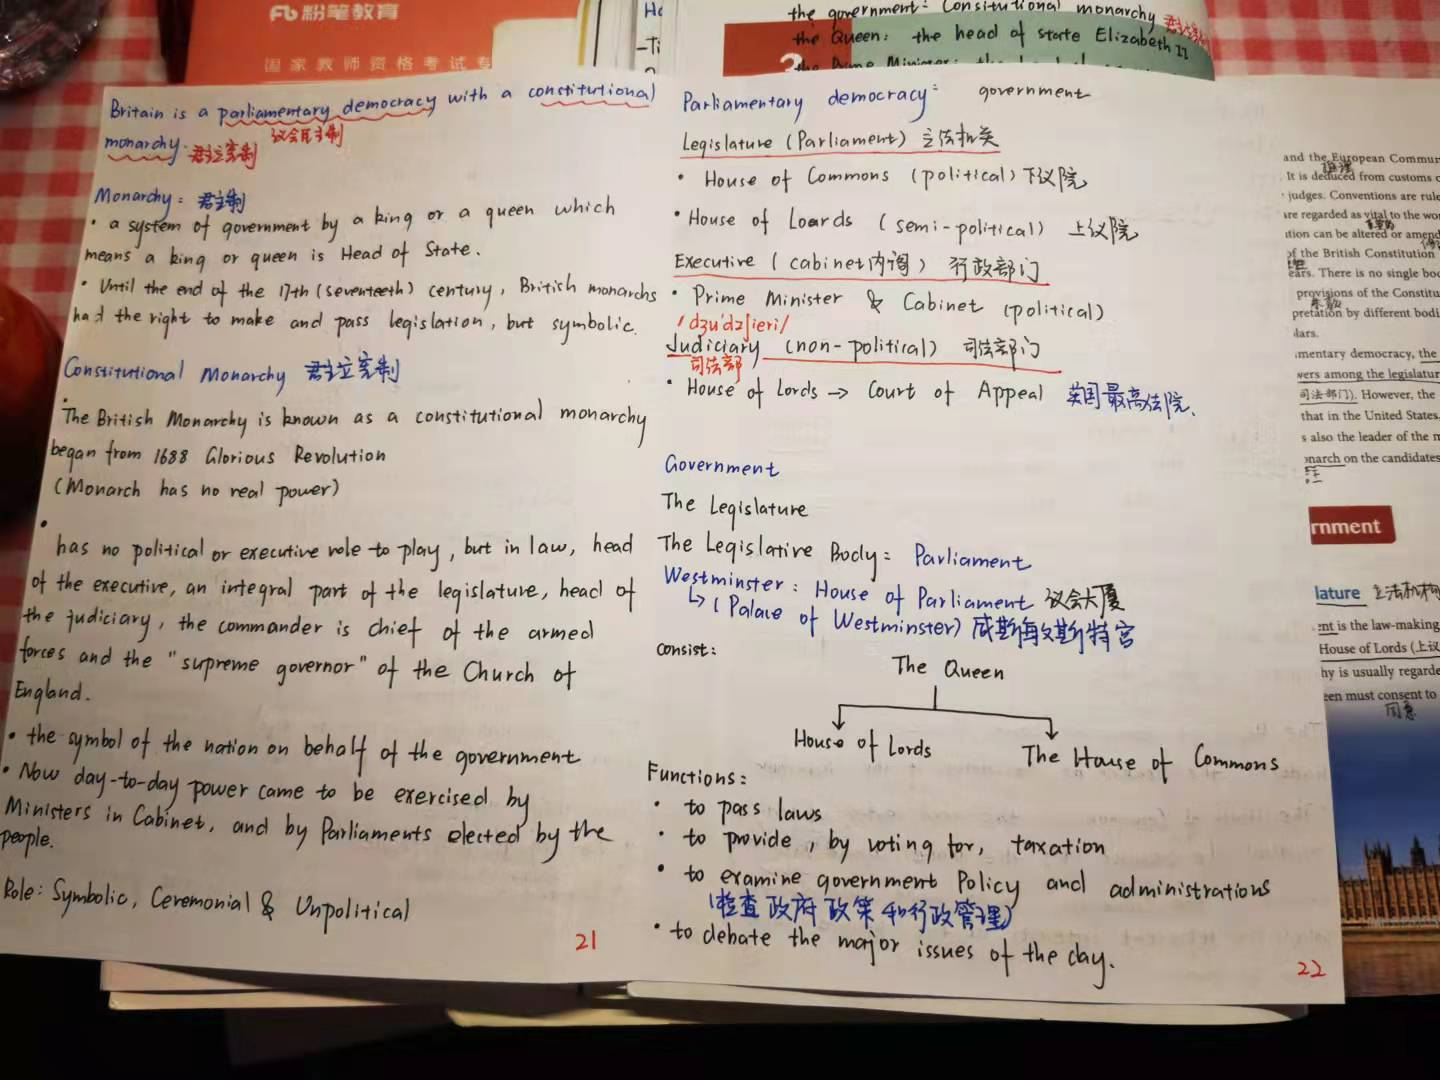 粉笔教育
国家教师资格考试专
the government: Consitutional monarchy
the Queen: the head of state Elizabeth II
the Prime Minister:
Britain is a parliamentary democracy with a constitutional
议会民主制
monarchy. 君主立宪制
Monarchy: 君主制
• a system of government by a king or a queen which
means a king or queen is Head of State.
• Until the end of the 17th (seventeeth) century, British monarchs
had the right to make and pass legislation, but symbolic.
Constitutional Monarchy 君主立宪制
• The British Monarchy is known as a constitutional monarchy
began from 1688 Glorious Revolution
(Monarch has no real power)
• has no political or executive role to play, but in law, head
of the executive, an integral part of the legislature, head of
the judiciary, the commander is chief of the armed
forces and the "supreme governor" of the Church of
England.
• the symbol of the nation on behalf of the government
• Now day-to-day power came to be exercised by
Ministers in Cabinet, and by Parliaments elected by the
people.
Role: Symbolic, Ceremonial & Unpolitical
21
Parliamentary democracy: government
Legislature (Parliament) 立法机关
• House of Commons (political) 下议院
• House of Loards (semi-political) 上议院
Executive (cabinet内阁) 行政部门
• Prime Minister & Cabinet (political)
Judiciary (non-political) 司法部门
司法部
• House of Lords → Court of Appeal 英国最高法院.
Government
The Legislature
The Legislative Body: Parliament
Westminster: House of Parliament 议会大厦
↳ (Palace of Westminster) 威斯敏斯特宫
consist:
The Queen
House of Lords The House of Commons
Functions:
• to pass laws
• to provide, by voting for, taxation
• to examine government Policy and administrations
(检查政府政策和行政管理)
• to debate the major issues of the day.
22
and the European Commun
It is deduced from customs
judges. Conventions are rule
are regarded as vital to the wor
tion can be altered or amend
of the British Constitution
ears. There is no single bod
provisions of the Constitu
pretation by different bodi
lars.
mentary democracy, the
wers among the legislatur
司法部门). However, the
that in the United States.
s also the leader of the m
onarch on the candidates
rnment
lature 立法机构
ent is the law-making
House of Lords (上议
hy is usually regarde
een must consent to
同意